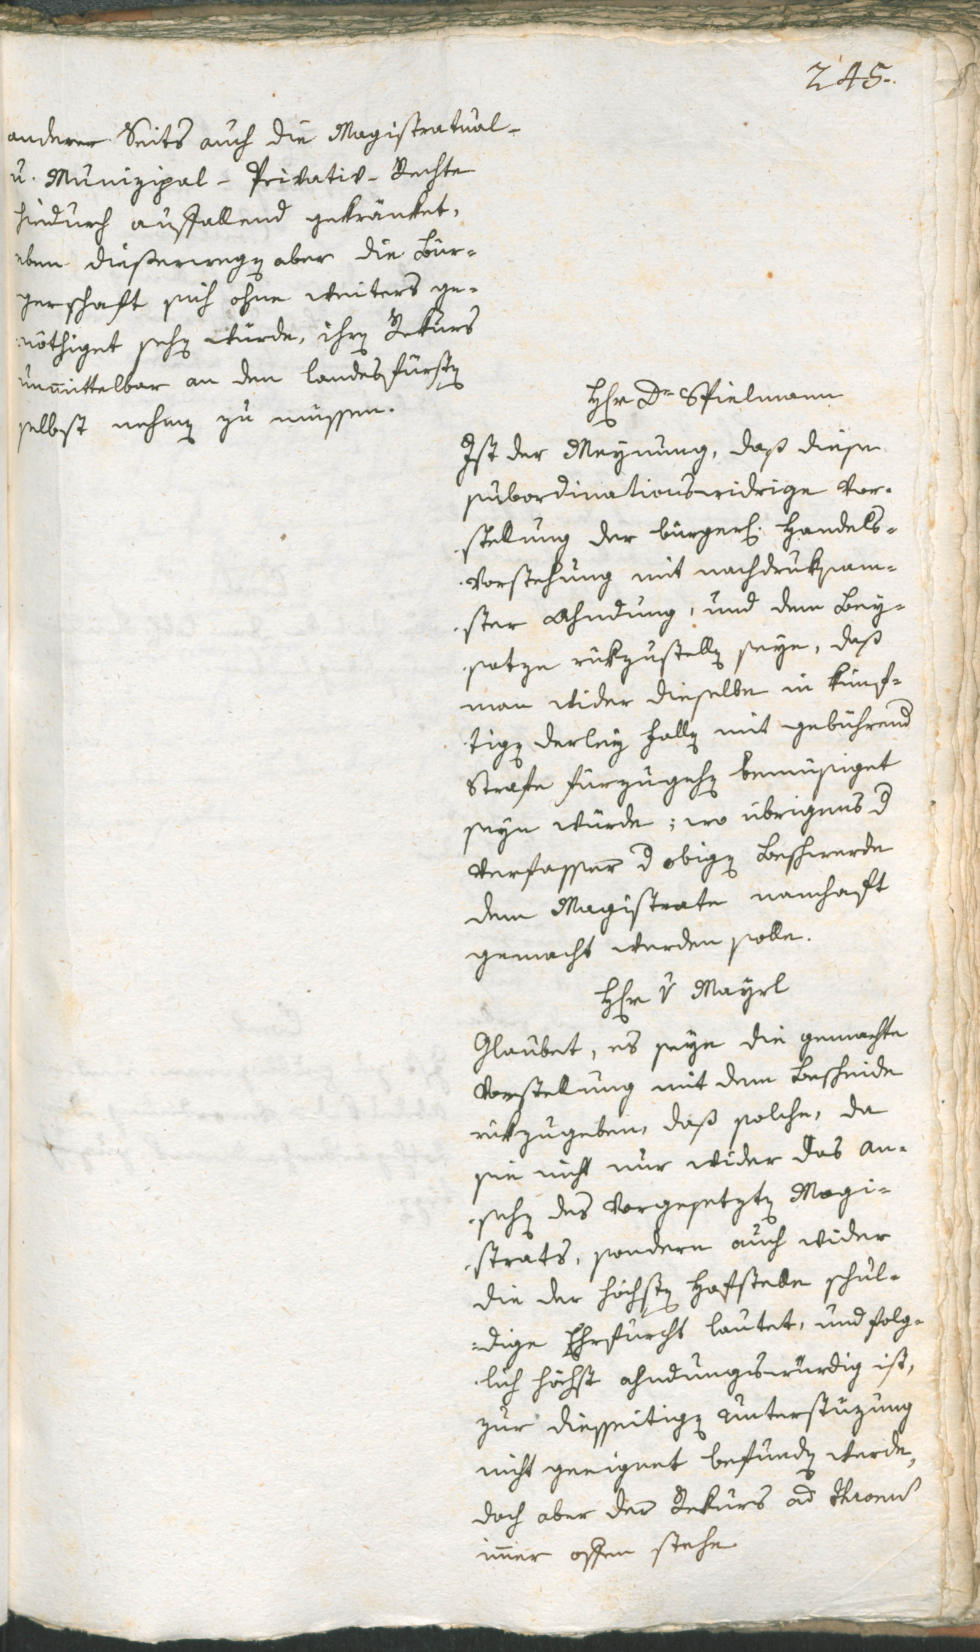 245.
anderer Seits auch die Magistratual-
u. Munizipal- Privativ- Rechte
hiedurch auffallend gekränket,
eben dießerwegen aber die Bür-
gerschaft sich ohne weiters ge-
nöthiget sehen würde, ihren Rekurs
unmittelbar an den Landesfürsten
selbst nehmen zu müssen.
Hr Dr Spielmann
Ist der Meynung, daß diese
subordinationswidrige Vor-
stellung der bürgerl. Handels-
Vorstehung mit nachdruksam-
ster Ahndung, und dem Bey-
satze rükzustellen seye, daß
man wider dieselbe in künf-
tigen derley Fallen mit gebührend
Strafe fürzugehen bemüsiget
seyn würde; wo übrigens d
Verfasser d obigen Beschwerde
dem Magistrate namhaft
gemacht werden solle.
Hr v Mayrl
Glaubet, es seye die gemachte
Vorstellung mit dem Bescheide
rükzugeben, daß solche, da
sie nicht nur wider das An-
sehen des Vorgesetzten Magi-
strats, sondern auch wider
die der höchsten Hofstelle schul-
dige Ehrfurcht lautet, und folg-
lich höchst ahndungswürdig ist,
zur diesseitigen Unterstüzung
nicht geeignet befunden werde,
doch aber der Rekurs ad thronum
immer offen stehe